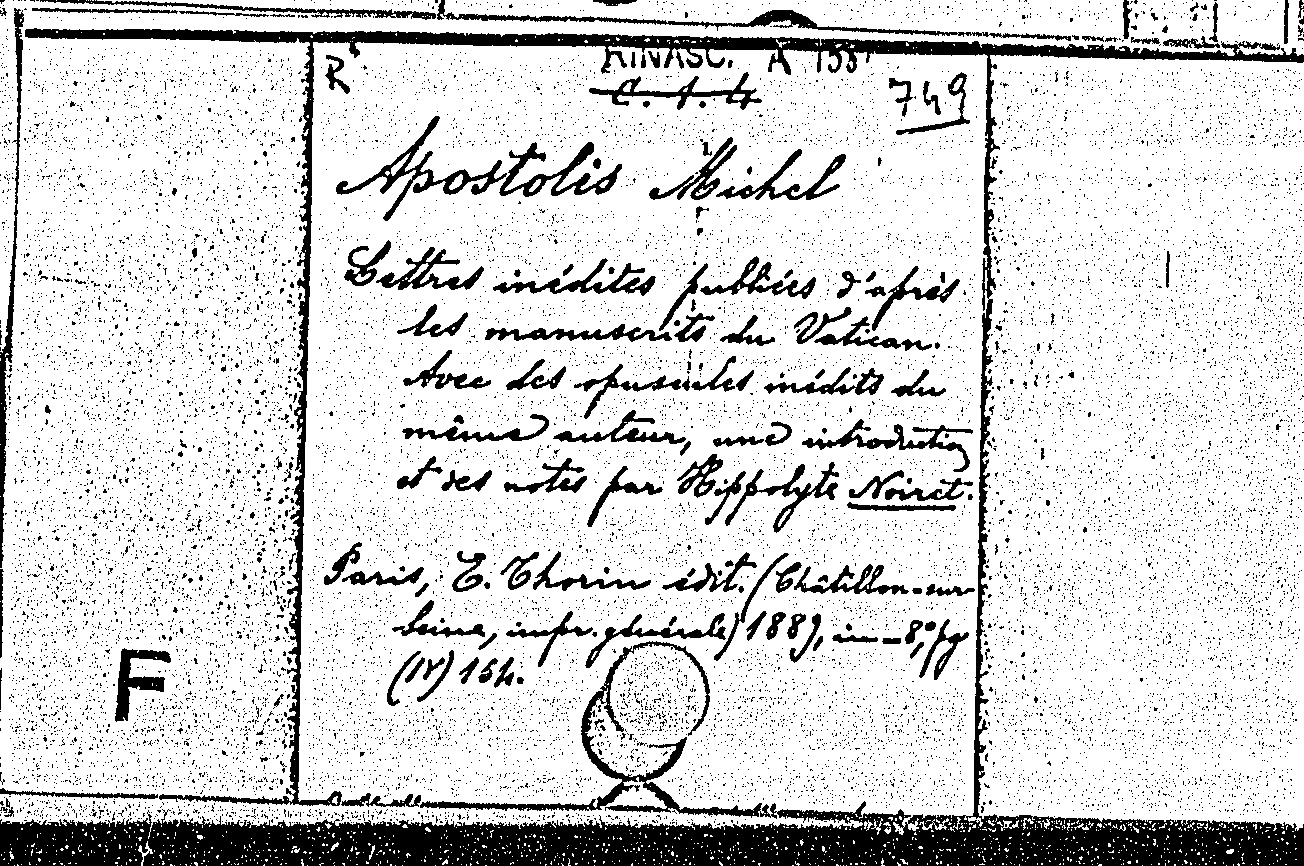 R
RINASC. A
C. 1. 4
749
Apostolis Michel
Lettres inédites publiées d'après
les manuscrits du Vatican.
Avec des opuscules inédits du
même auteur, une introduction
et des notes par Hippolyte Noiret.
Paris, E. Thorin édit. (Châtillon-sur-
Seine, impr. générale) 1889, in-8°, pg
(IV) 154.
F